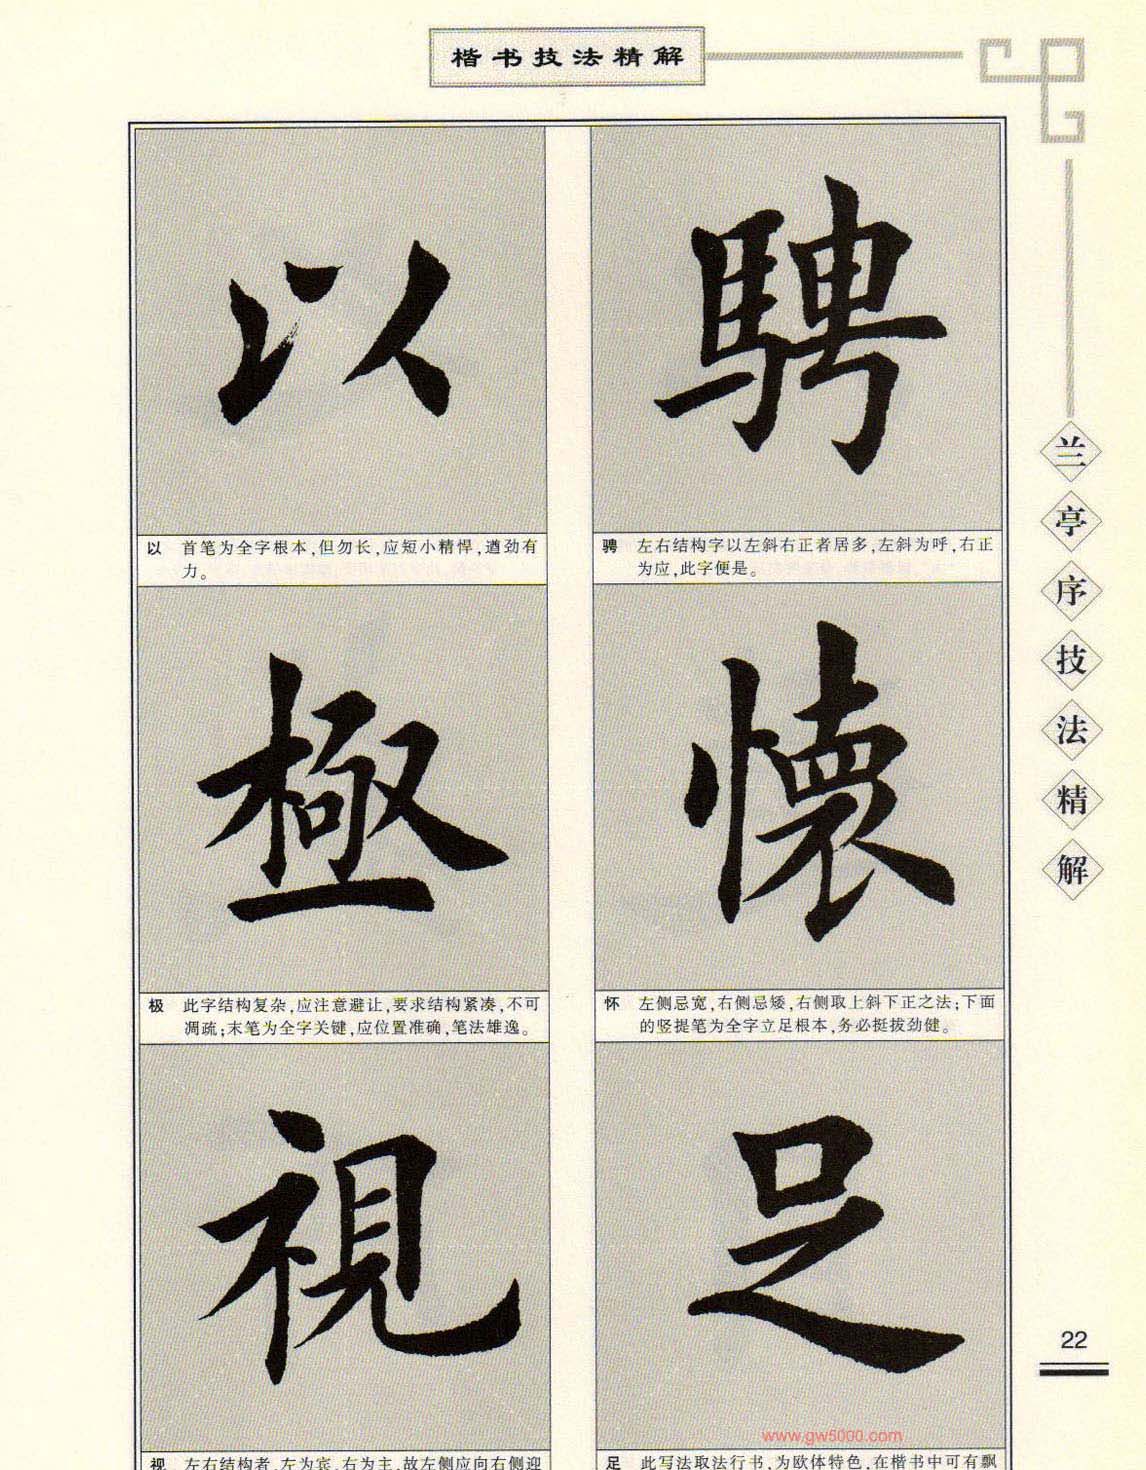 楷书技法精解
騁
骋 左右结构字以左斜右正者居多,左斜为呼,右正
为应,此字便是。
懐
怀 左侧忌宽,右侧忌矮,右侧取上斜下正之法;下面
的竖提笔为全字立足根本,务必挺拔劲健。
足
足 此写法取法行书,为欧体特色,在楷书中可有飘
以
以 首笔为全字根本,但勿长,应短小精悍,遒劲有
力。
極
极 此字结构复杂,应注意避让,要求结构紧凑,不可
凋疏;末笔为全字关键,应位置准确,笔法雄逸。
視
视 左右结构者,左为宾,右为主,故左侧应向右侧迎
兰亭序技法精解
22
www.gw5000.com